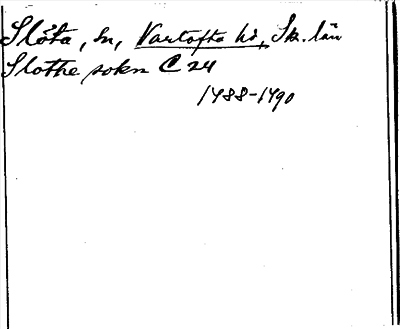 Slöta, sn, Vartofta hd, Sk. län
Slothe sokn C 24
1488-1490